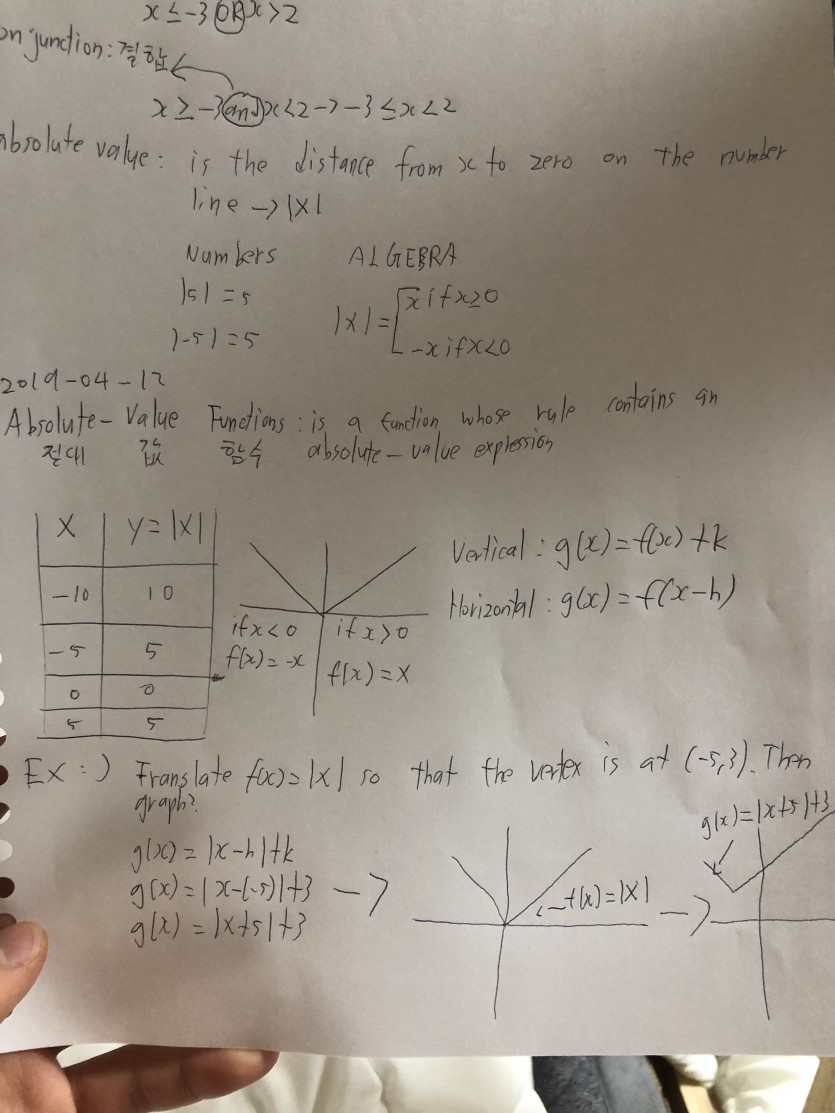 x ≤ -3 OR x > 2
onjunction: 결합
x ≥ -3 and x < 2 -> -3 ≤ x < 2
absolute value: is the distance from x to zero on the number
line -> |x|
Numbers ALGEBRA
|5| = 5
|-5| = 5
|x| = [x if x ≥ 0
-x if x < 0
2019-04-12
Absolute-Value Functions: is a function whose rule contains an
절대 값 함수 absolute-value expression
x y = |x|
-10 10
-5 5
0 0
5 5
if x < 0
f(x) = -x
if x > 0
f(x) = x
Vertical: g(x) = f(x) + k
Horizontal: g(x) = f(x-h)
EX:) Translate f(x) = |x| so that the vertex is at (-5,3). Then
graph?
g(x) = |x-h| + k
g(x) = |x-(-5)| + 3 ->
g(x) = |x+5| + 3
<- f(x) = |x| ->
g(x) = |x+5| + 3